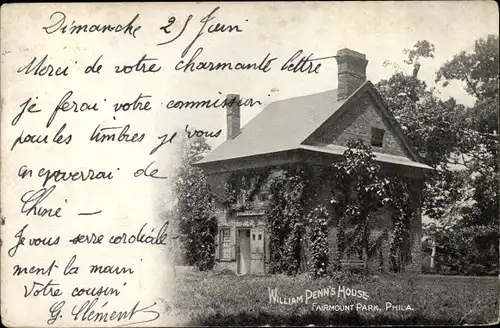 Dimanche 25 Juin
Merci de votre charmante lettre
je ferai votre commission
pour les timbres je vous
en enverrai de
Chine —
Je vous serre cordiale
ment la main
Votre cousin
G. Clément
WILLIAM PENN'S HOUSE,
FAIRMOUNT PARK, PHILA.